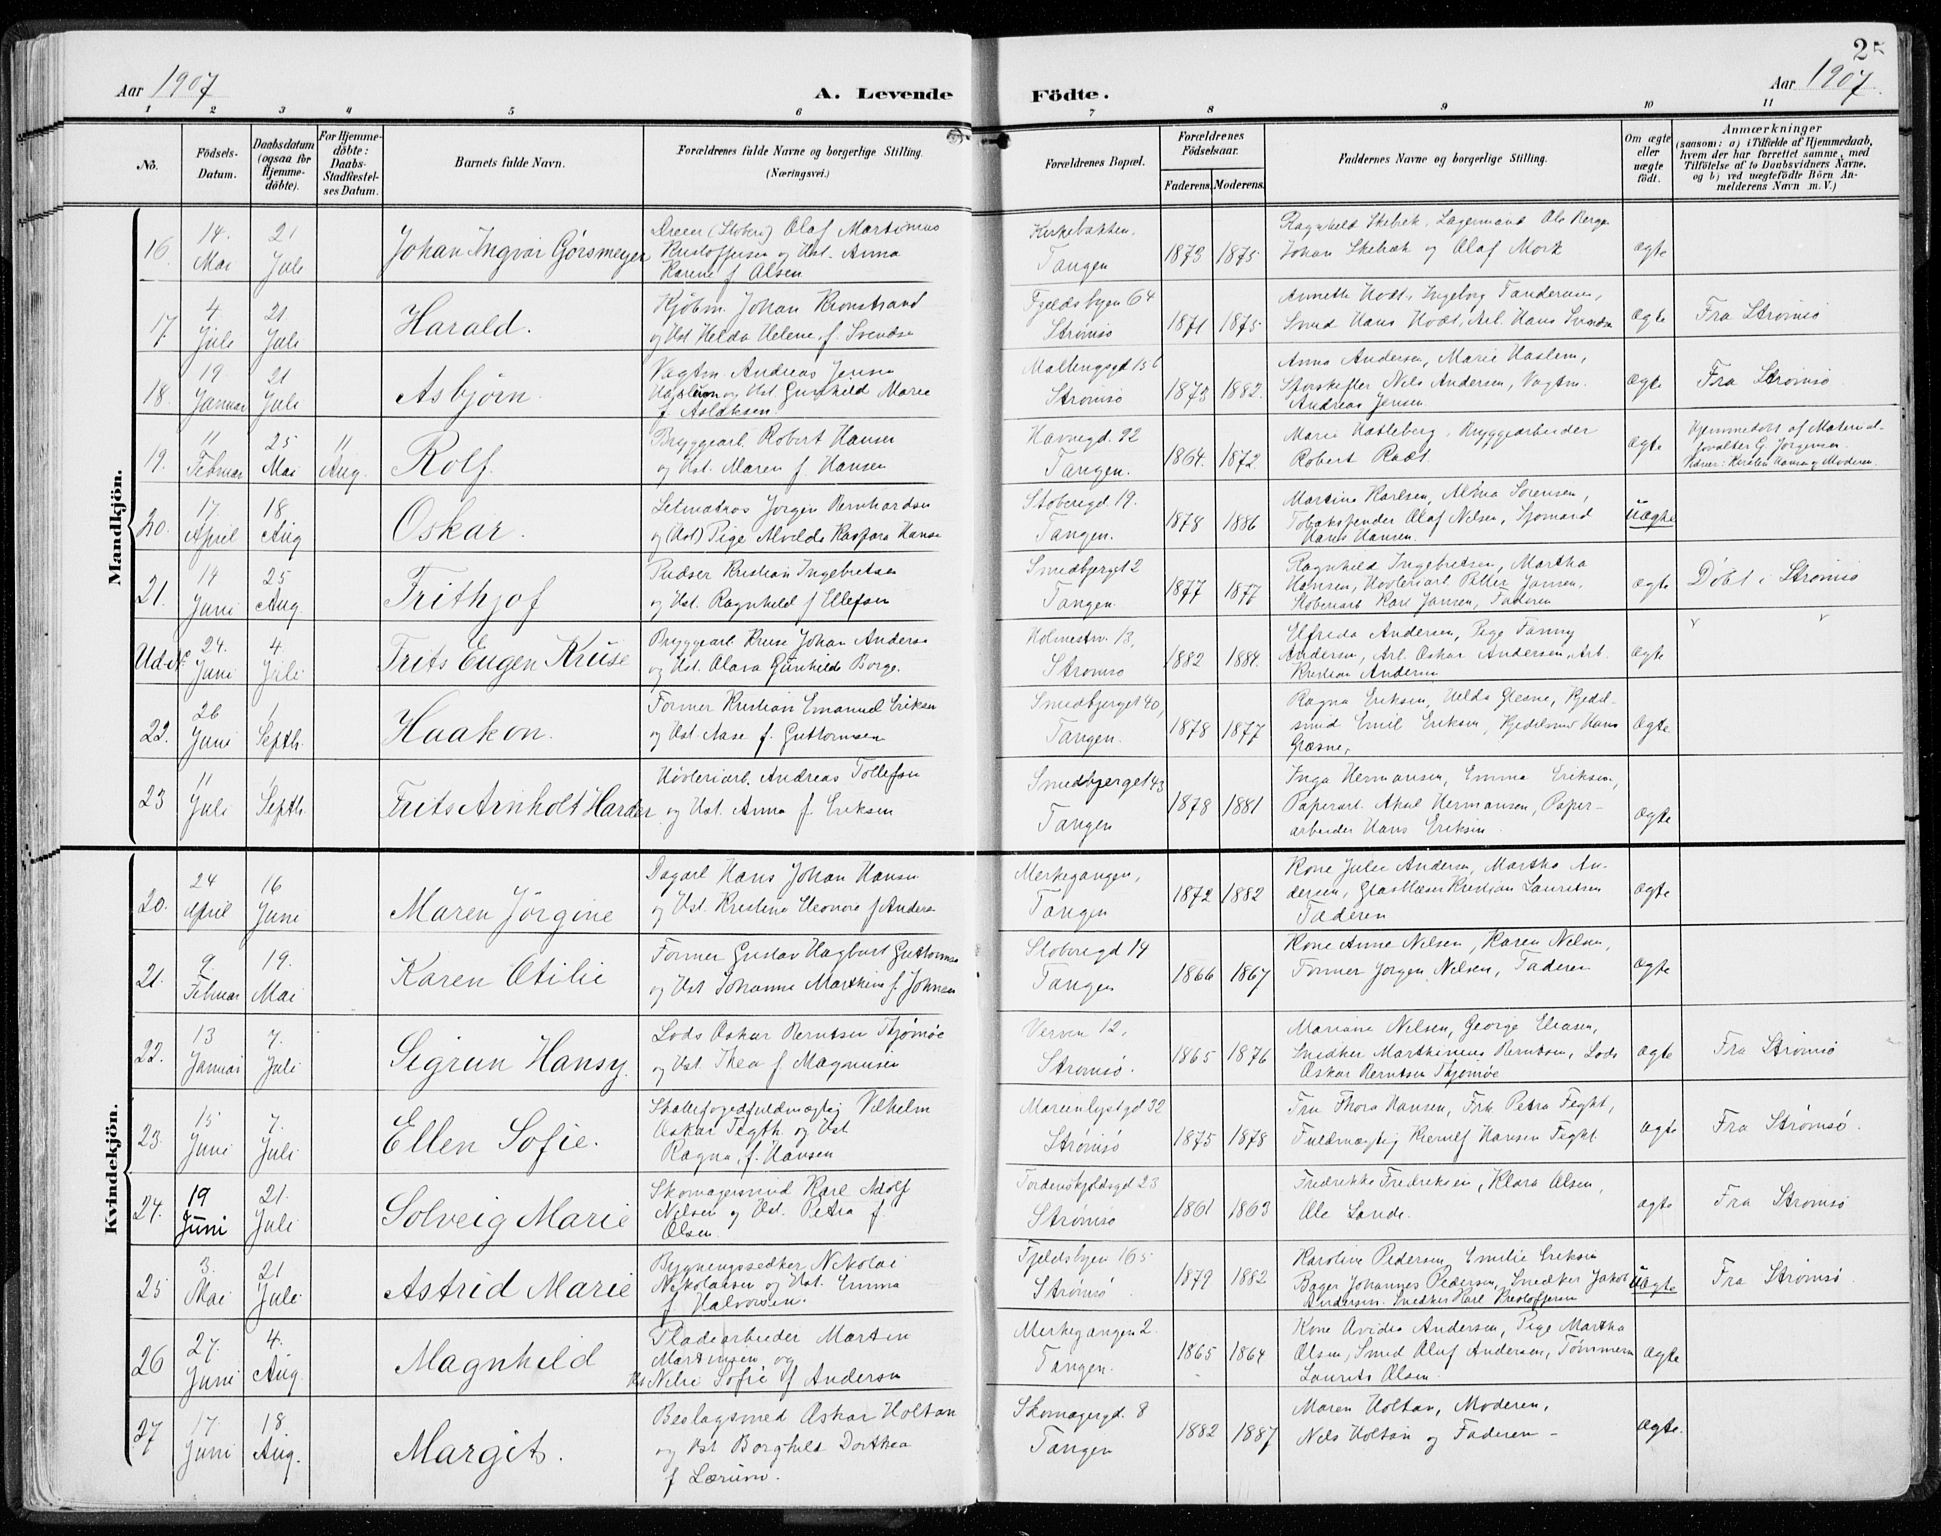 25
Aar 1907
A. Levende Födte.
Aar 1907.
1 2 3 4 5 6 7 8 9 10 11
Nô.
Födsels-
Datum.
Daabsdatum
(ogsaa for
Hjemme-
döbte).
For Hjemme-
döbte:
Daabs-
Stadfæstel-
ses Datum.
Barnets fulde Navn.
Forældrenes fulde Navne og borgerlige Stilling.
(Næringsvei.)
Forældrenes Bopæl.
Forældrenes
Födselsaar.
Faderens. Moderens.
Faddernes Navne og borgerlige Stilling.
Om ægte
eller
uægte
født.
Anmærkninger
(saasom: a) i Tilfælde af Hjemmedaab,
hvem der har forrettet samme, med
Tilföielse af to Daabsvidners Navne,
og b) ved uægtefödte Börn An-
melderens Navn m. V.)
Mandkjön.
16.
14.
Mai
21
Juli
Johan Ingvar Görsmeyer
Dreier (Stoberi) Olaf Martinius
Kristoffersen og Hst. Anna
Karene f. Olsen
Kirkebakken,
Tangen
1873 1875
Ragnhild Skebek, Lagermand Ole Berge
Johan Skebæk og Olaf Mork
ægte
17.
4.
Juli
21
Juli
Harald.
Kjöbm. Johan Kronstrand
og Hst. Helda Helene f. Svendse
Fjeldsbyen 64
Strømsö
1871 1875
Annette Hodt, Ingeborg Tandersen,
Smed Hans Hodt, Arb. Hans Svendse
ægte
Fra Strömsö
18.
19
Januar
21
Juli
Asbjörn.
Vagtm. Andreas Jensen
og Hst. Gunhild Marie
f. Aslaksen
Maltengsgd 156
Strömsö
1873 1882.
Anna Andersen, Marie Haslem,
Sporskifter Nils Andersen, Vagtm.
Andreas Jensen.
ægte
Fra Strömsö
19.
11
Februar
25
Mai
11
Aug.
Rolf.
Bryggearb. Robert Hansen
og Hst. Maren f. Hansen
Havnegd. 92
Tangen.
1864. 1872
Marie Hatleberg, Bryggearbeider
Robert Rodt
ægte
Hjemmedöbt af Material-
forvalter G. Jörgensen.
Vidner: Kirsten Hansen og Moderen.
20.
17
April
18
Aug
Oskar.
Letmatros Jörgen Bernhardsen
og (Hst) Pige Alvilde Kaspara Hanse
Stoberigd 19.
Tangen.
1878 1886
Martine Karlsen, Alma Sørensen,
Tobakspinder Olaf Nilsen, Sjömand
Hans Hansen.
uægte
21.
14
Juni
25
Aug
Frithjof
Pudser Kristian Ingebretsen
og Hst. Ragnhild f. Ellefsen
Smedbjerget 2
Tangen.
1877 1877
Ragnhild Ingebretsen, Martha
Hansen, Hövleriarb. Petter Jansen,
Stoberiarb Karl Jansen, Faderen
ægte
Döbt i Strömsö
Ud. No
24.
Juni
4.
Juli
Frits Eugen Kruse
Bryggearb. Kruse Johan Anderse
og Hst. Olava Gunhilde Borge.
Holmestrv. 13,
Strömsö
1882 1884.
Elfrida Andersen, Pige Fanny
Andersen, Arb. Oskar Andersen, Arb.
Kristian Andersen
ægte
22.
26
Juni
1
Septb.
Haakon.
Former Kristian Emanuel Eriksen
og Hst. Aase f. Guttormsen
Smedbjerget 40,
Tangen.
1878 1877
Ragna Eriksen, Helda Græsne, Kjedel-
smed Emil Eriksen, Kjedelsmed Hans
Græsne,
ægte
23
11
Juli
1
Septb.
Frits Arnholt Harder
Hövleriarb. Andreas Tollefsen
og Hst. Anna f. Eriksen
Smedbjerget 43
Tangen
1878 1881
Inga Hermansen, Emma Eriksen,
Papirarb. Aksel Hermansen, Papir-
arbeider Hans Eriksen.
ægte
Kvindekjön.
20.
24
April
16
Juni
Maren Jörgine
Dagarb Hans Johan Hansen
og Hst. Kristine Eleonore f. Anderse
Merkegangen,
Tangen
1872 1882
Kone Julie Andersen, Martha An-
dersen, Glasblæser Kristian Lauritsen
Faderen
ægte
21.
9.
Februar
19.
Mai
Karen Otilie
Former Gustav Hagbart Guttormsen
og Hst Johanne Marthine f. Johnsen
Stoberigd 14
Tangen
1866 1867
Kone Anne Nilsen, Karen Nilsen,
Former Jörgen Nilsen, Faderen
ægte
22.
13
Januar
7.
Juli
Sigrun Hansy.
Lods Oskar Berntsen Thjömöe
og Hst. Thea f. Magnusen
Verven 12.
Strömsö.
1865 1876
Mariane Nilsen, George Eliasen,
Snedker Marthinius Berntsen, Lods
Oskar Berntsen Thjömöe
ægte
Fra Strömsö
23.
15
Juni
7.
Juli
Ellen Sofie.
Skattefogedfuldmægtig Vilhelm
Oskar Fegth og Hst
Ragna f. Hansen
Mareinlystgd 32
Strömsö
1875 1878
Fru Thora Hansen, Frk. Petra Feght,
Fuldmægtig Kierulf Hansen Feght.
ægte
Fra Strömsö.
24.
19
Juni
21.
Juli
Solveig Marie
Skomagersvend Karl Adolf
Nilsen og Hst. Petra f.
Olsen
Tordenskjoldsgd 23
Strömsö
1861 1863
Fredrikke Fredriksen, Klara Olsen,
Ole Lande.
ægte
Fra Strömsö
25
3.
Mai
21
Juli
Astrid Marie
Bygningssnedker Nikolai
Nikolaisen og Hst. Emma
f. Halvorsen.
Fjeldsbyen 165
Strömsö.
1879 1882
Karoline Pedersen, Emilie Eriksen
Bager Johannes Pedersen, Snedker Jakob
Andersen. Snedker Karl Kristoffersen
uægte
Fra Strömsö
26
27.
Juni
4.
Aug.
Magnhild
Pladearbeider Martin
Martinsen og
Hst Nilie Sofie f. Andersen
Merkegangen 2.
Tangen.
1865 1864
Kone Avidia Andersen, Pige Martha
Olsen, Smed Oluf Andersen, Tömmerm
Laurits Olsen.
ægte
27
17
Juni
18
Aug.
Margit.
Beslagsmed Oskar Holtan
og Hst Borghild Dorthea
f. Lærum.
Skomagergd. 8
Tangen
1882 1887
Maren Holtan, Moderen,
Nils Holtan og Faderen –
ægte.